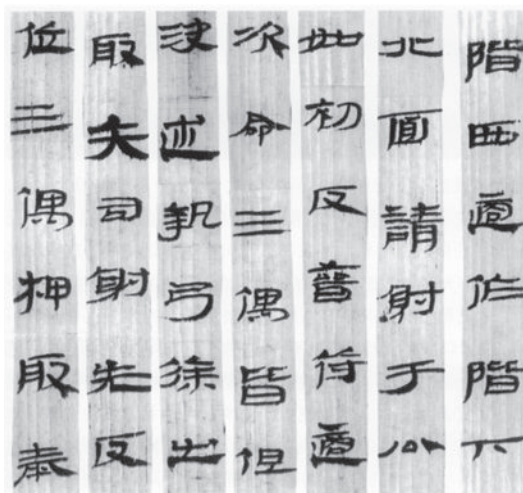 階西適作階下
北面請射于公
如初反晉符適
次命三偶皆但
決述執弓徐出
取矢司射先反
位三偶押取奉